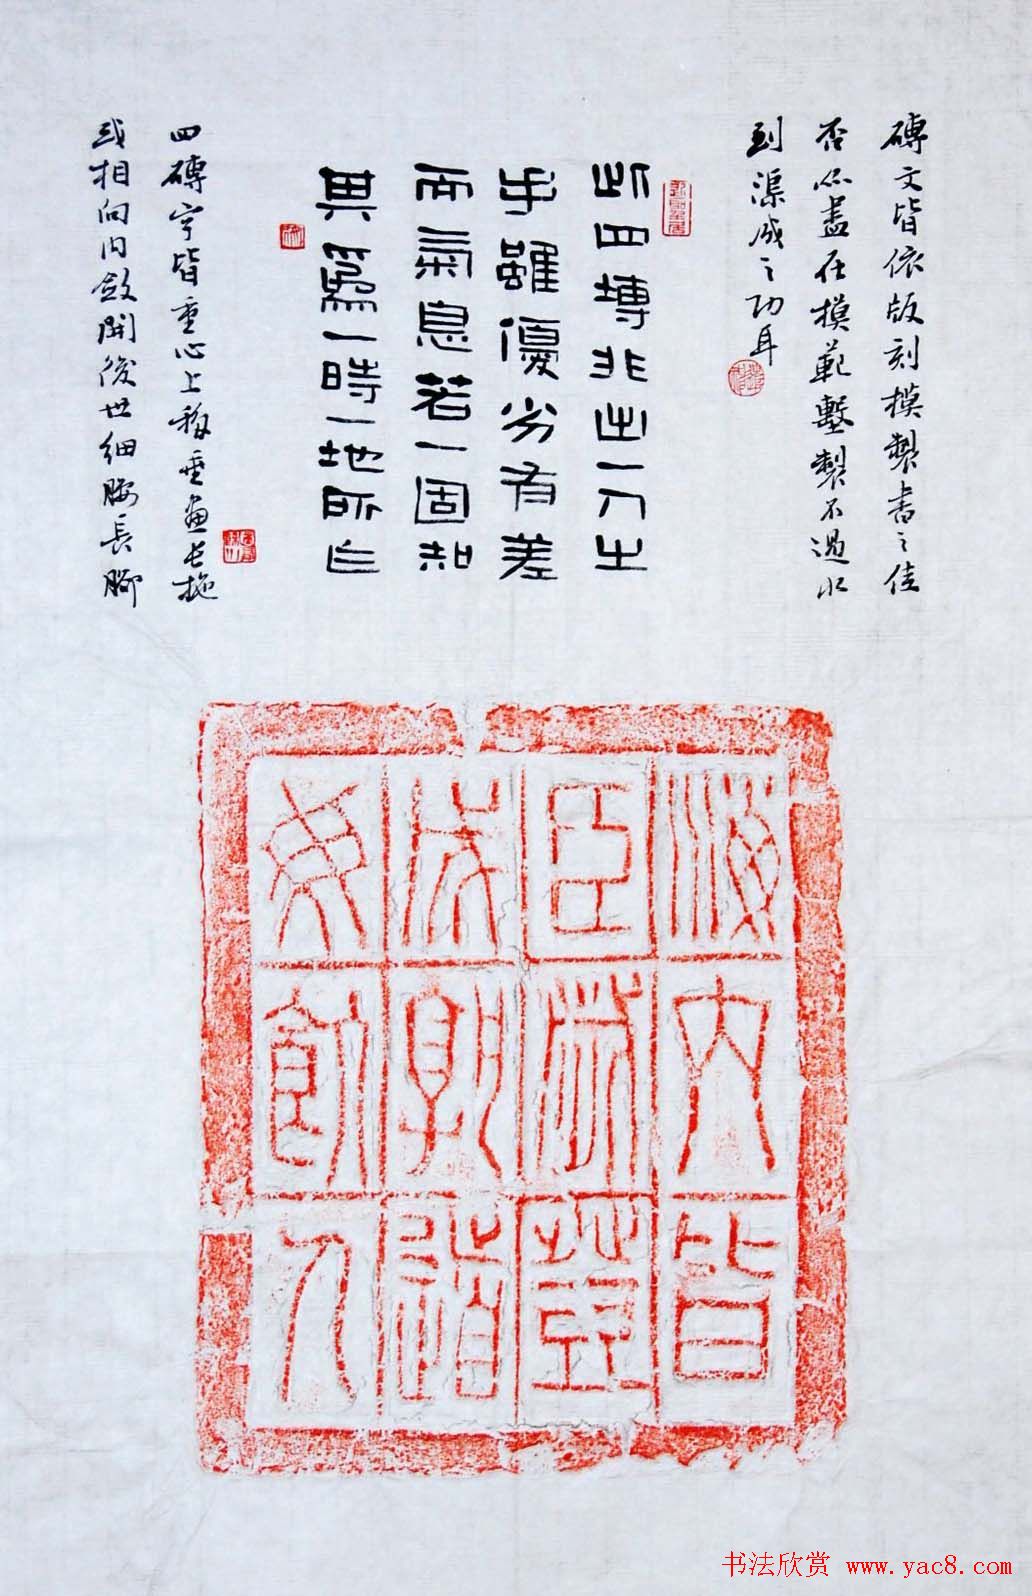 磚文皆依版刻模製書之佳
否盡在模範鑿製不過水
到渠成之功耳
此四塼非出一人之
手雖優劣有差
而氣息若一固知
其爲一時一地所乍
四磚字皆重心上移垂畫長拖
或相向内斂開後世細腰長腳
海内皆
臣歲登
成孰道
毋飢人
书法欣赏 www.yac8.com